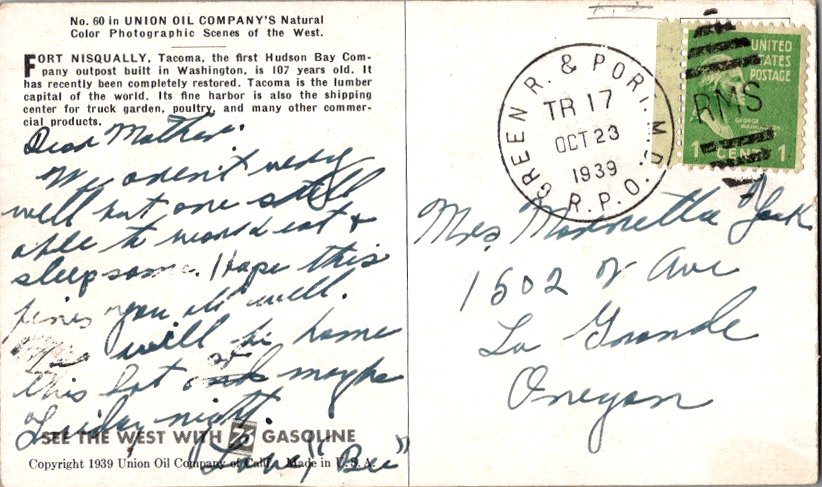 No. 60 in UNION OIL COMPANY'S Natural
Color Photographic Scenes of the West.
FORT NISQUALLY, Tacoma, the first Hudson Bay Com-
pany outpost built in Washington, is 107 years old. It
has recently been completely restored. Tacoma is the lumber
capital of the world. Its fine harbor is also the shipping
center for truck garden, poultry, and many other commer-
cial products.
Dear Mother:
We aren't very
well but are still
able to eat &
sleep some. Hope this
finds you all well.
will be home
this Sat or maybe
Friday night.
Love, "Bee"
SEE THE WEST WITH 76 GASOLINE
Copyright 1939 Union Oil Company of Calif. Made in U.S.A.
GREEN R. & PORT. M.D.
TR 17
OCT 23
1939
R.P.O.
RMS
UNITED
STATES
POSTAGE
GEORGE
WASHINGTON
1 CENT 1
Mrs
1502 Ave
La Grande
Oregon